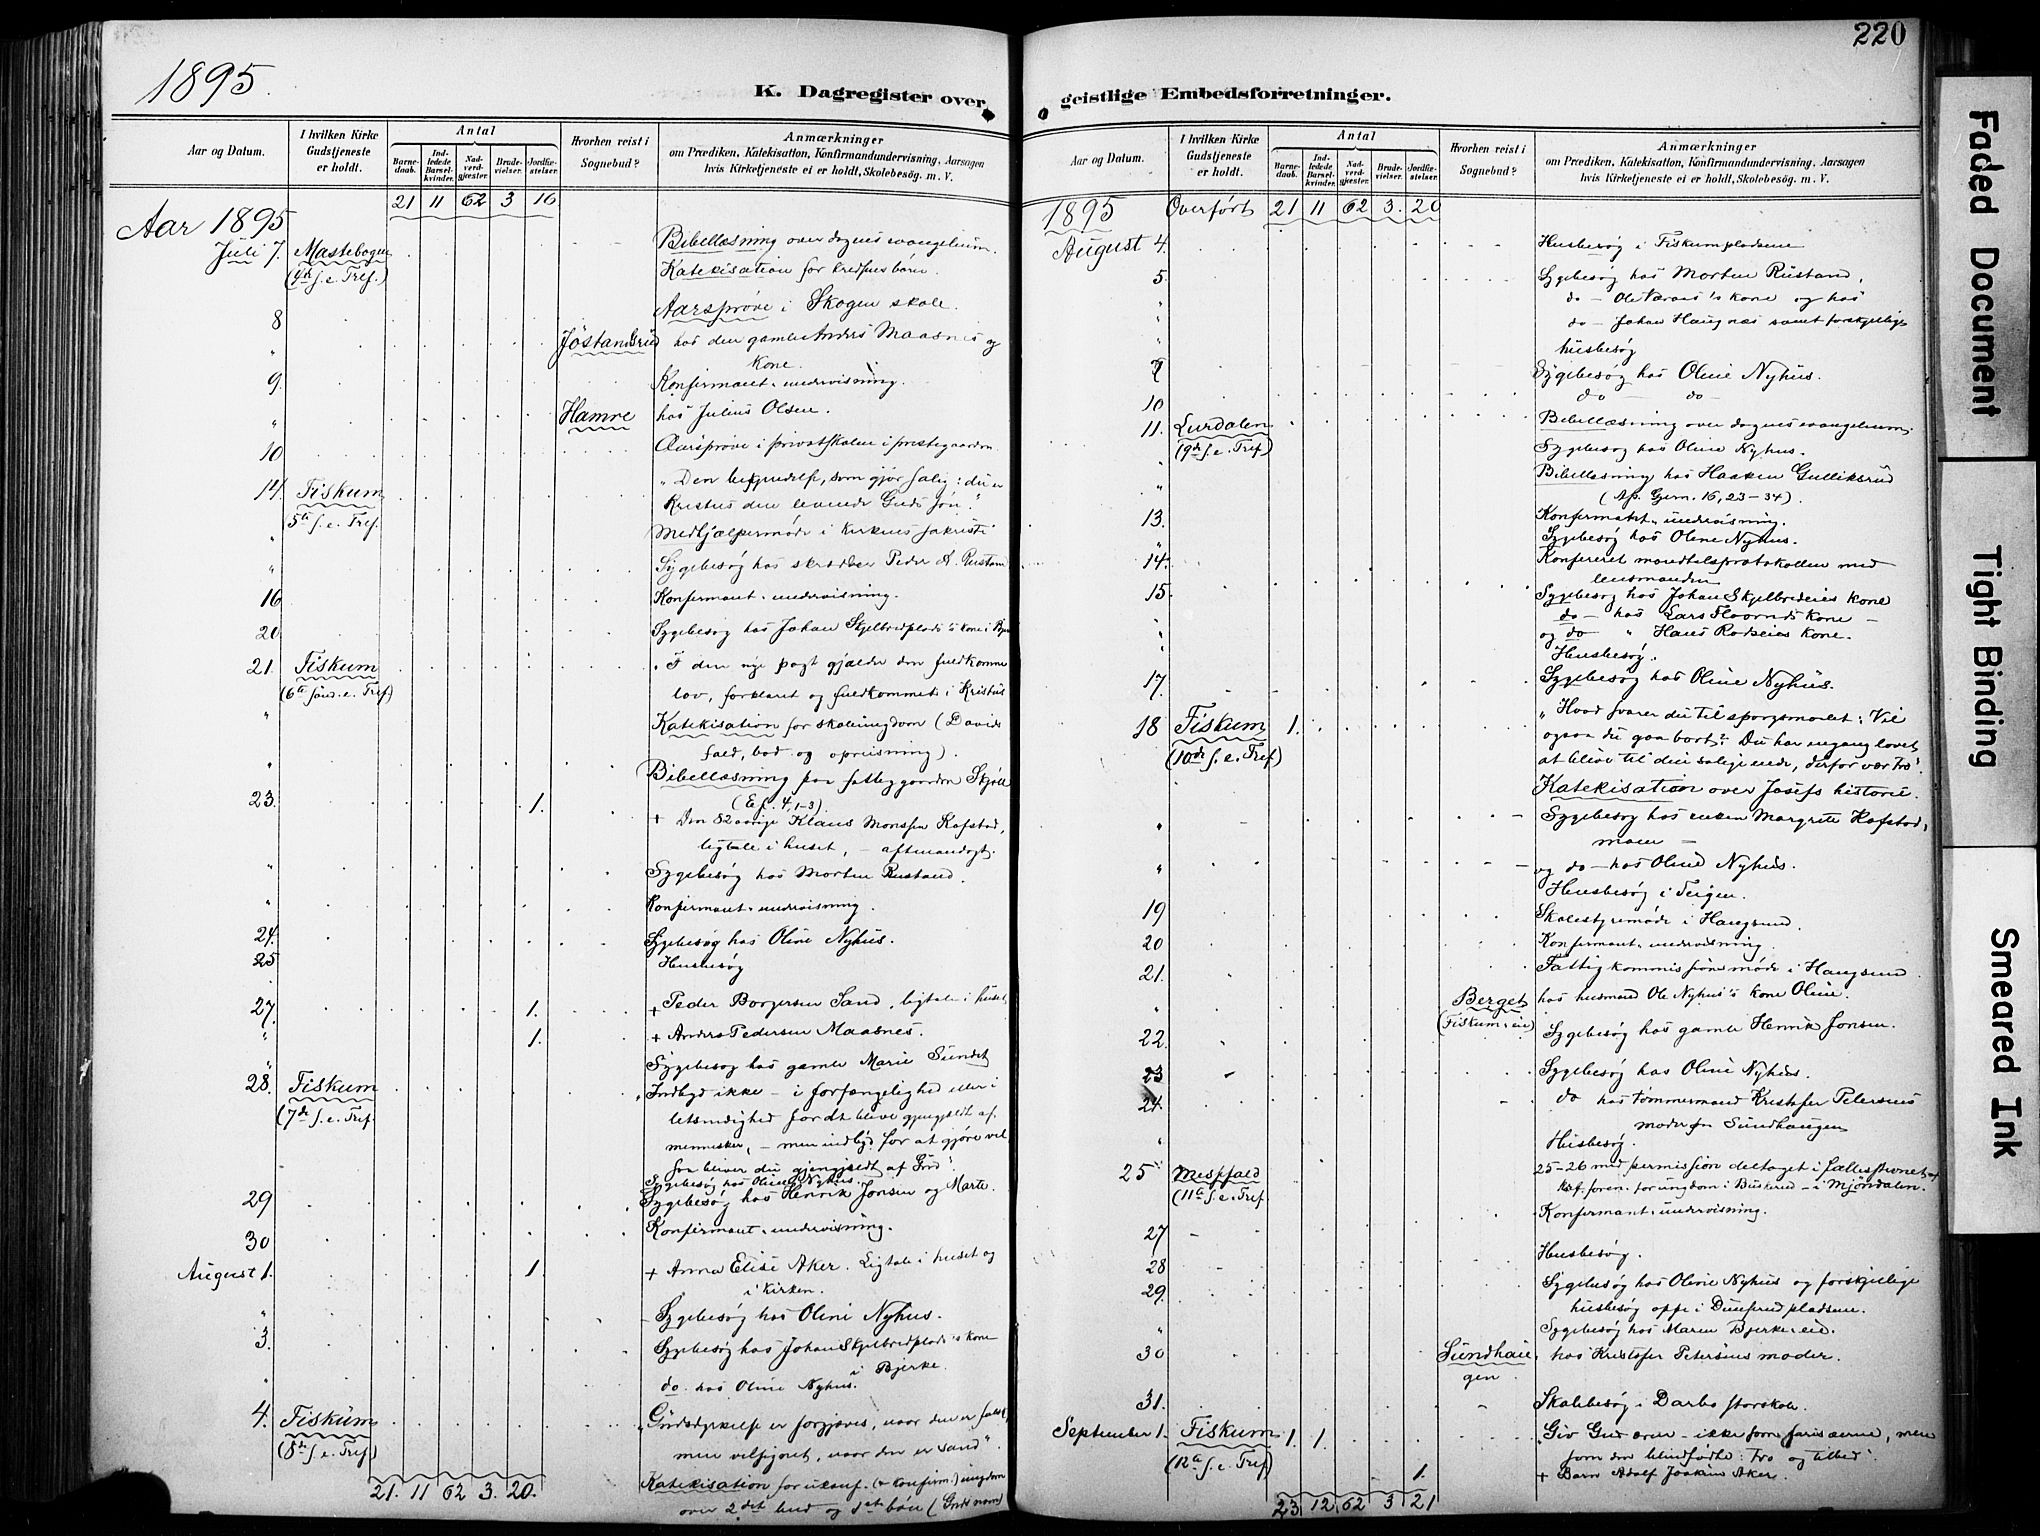 220
1895.
K. Dagregister over
Aar og Datum.
I hvilken Kirke Gudstjeneste er holdt.
Antal
Barne-daab.
Ind-ledede Barsel-kvinder.
Nad-verd-gjæster.
Brude-vielser.
Jordfæ-stelser.
Hvorhen reist i Sognebud?
Anmærkninger
om Prædiken, Katekisation, Konfirmandundervisning, Aarsagen
hvis Kirketjeneste ei er holdt, Skolebesøg. m. V.
21 11 62 3 16
Aar 1895
Juli 7. Mastebogen Bibellæsning over dagens evangelium.
(4de s. e. Tref.) Katekisation for kredsens børn.
8 Aarsprøve i Skogen skole.
" Jøstandsrud hos den gamle Anders Maasnes og
kone.
9. Konfirmant-undervisning.
" Hamre hos Julius Olsen.
10 Aarsprøve i privatskolen i prestegaarden
14. Fiskum "Den begrundelse, som gjør salig: du er
5te s. e. Tref. Kristus den levende Guds søn."
" Medhjælpermøde i kirkens sakristi
" Sygebesøg hos skrædder Peder A. Rustand
16 Konfirmant-undervisning.
20 Sygebesøg hos Johan Skjelbredplads's kone i
21. Fiskum "I den nye pagt gjælder den fuldkomne
(6te sønd. e. Tref) lov, forklaret og fuldkommet i Kristus
" Katekisation for skoleungdom (Davids
fald, bod og opreisning).
" Bibellæsning paa fattiggaarden Skjøll
(Ef. 4, 1-3).
23. 1. + Den 82 aarige Klaus Monssen Kofstad,
ligtale i huset, - aftmandagt.
" Sygebesøg hos Morten Rustand.
" Konfirmant-undervisning.
24. Sygebesøg hos Oline Nyhus.
25 Husbesøg
27. 1. + Peder Borgersen Sand, ligtale i huset
" 1. + Anders Pedersen Maasnes.
" Sygebesøg hos gamle Marie Sundet
28. Fiskum "Indbyd ikke - i forfængelighed eller i
(7de s. e. Tref. letsindighed for at blive gjengjeldt af
mennesker, - men indbyd for at gjøre vel,
saa bliver du gjengjeldt af Gud".
Sygebesøg hos Oline Nyhus.
29 Sygebesøg hos Henrik Jonsen og Marte.
30 Konfirmant-undervisning.
August 1. 1. + Anna Elise Aker. Ligtale i huset og
i kirken.
" Sygebesøg hos Oline Nyhus.
3. Sygebesøg hos Johan Skjelbredplads's kone
i Bjerke.
" do. hos Oline Nyhus.
4. Fiskum "Gudsdyrkelse er forgjæves, naar den er falsk,
(8de s. e. Tref) men velsignet, naar den er sand".
Katekisation for ukonf. (& konfirm.) ungdom
over 2det bud og 1ste bøn (Guds navn)
21. 11 62 3. 20.
geistlige Embedsforretninger.
Aar og Datum.
I hvilken Kirke Gudstjeneste er holdt.
Antal
Barne-daab.
Ind-ledede Barsel-kvinder.
Nad-verd-gjæster.
Brude-vielser.
Jordfæ-stelser.
Hvorhen reist i Sognebud?
Anmærkninger
om Prædiken, Katekisation, Konfirmandundervisning, Aarsagen
hvis Kirketjeneste ei er holdt, Skolebesøg. m. V.
1895 Overført 21 11 62 3. 20
August 4. Husbesøg i Fiskumpladsene
5. Sygebesøg hos Morten Rustand,
" do - Ole Næraas's kone og hos
" do - Johan Haugnæs samt forskjellige
" husbesøg
7 Sygebesøg hos Oline Nyhus.
10 do - do -
11. Lurdalen Bibellæsning over dagens evangelium.
(9de s. e. Tref) Sygebesøg hos Oline Nyhus.
" Bibellæsning hos Haaken Gulliksrud
(Ap. Gjern. 16, 23-34).
13. Konfirmant-undervisning.
" Sygebesøg hos Oline Nyhus.
14. Konfereret mandtalsprotokollen med
lensmanden
15. Sygebesøg hos Johan Skjelbredeies kone
" do - hos Lars Floornds kone -
" og do " Hans Rodseies kone.
" Husbesøg.
17. Sygebesøg hos Oline Nyhus.
18 Fiskum 1. "Hvad svarer du til spørgsmaalet: Vil
(10de s. e. Tref) ogsaa du gaa bort? Du har engang lovet
at blive til din salige ende, derfor vær tro".
Katekisation over Josefs historie.
" Sygebesøg hos enken Margrete Hofstad,
moen -
" og do - hos Oline Nyhus.
Husbesøg i Teigen.
19 Skolestyremøde i Haugsund.
20 Konfirmant-undervisning.
21. Fattigkommissionsmøde i Haugsund
" Berget hos husmand Ole Nyhus's kone Oline.
(Fiskum-eie)
22. Sygebesøg hos gamle Henrik Jonsen.
23 Sygebesøg hos Oline Nyhus.
24. do hos tømmermand Kristofer Petersens
moder paa Sundhaugen
" Husbesøg.
25 Mespfald 25-26 med permission deltaget i fællesstevnet af
(11te s. e. Tref. kr.foren. for ungdom i Buskerud - i Mjøndalen.
27 Konfirmant-undervisning.
28 Husbesøg.
29. Sygebesøg hos Oline Nyhus og forskjellige
husbesøg oppe i Dunserudpladsene.
" Sygebesøg hos Maren Bjerke-eie.
30 Sundhau- hos Kristofer Petersens moder.
gen
31. Skolebesøg i Darbo storskole.
September 1. Fiskum 1. 1. "Giv Gud æren - ikke som farisæerne, men
(12te s. e. Tref) som den blindfødte: tro og tilbed".
1. + Barn Adolf Joakim Aker.
23 12 62 3 21
Faded Document
Tight Binding
Smeared Ink